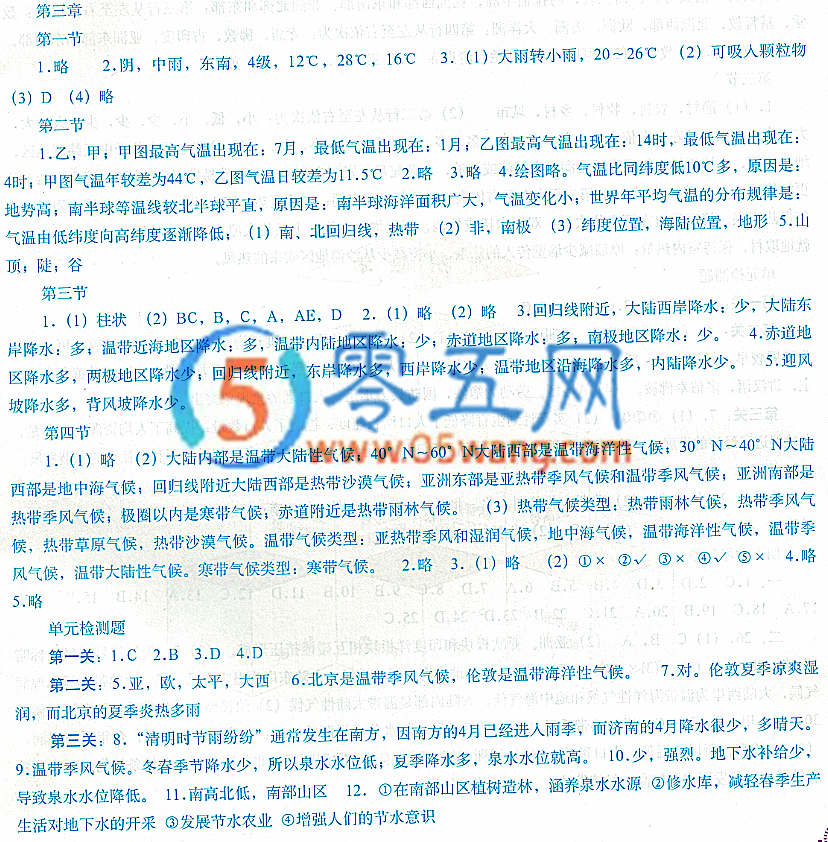 第三章
第一节
1.略 2.阴,中雨,东南,4级,12℃,28℃,16℃ 3.(1)大雨转小雨,20~26℃ (2)可吸入颗粒物
(3)D (4)略
第二节
1.乙,甲;甲图最高气温出现在:7月,最低气温出现在:1月;乙图最高气温出现在:14时,最低气温出现在:
4时;甲图气温年较差为44℃,乙图气温日较差为11.5℃ 2.略 3.略 4.绘图略。气温比同纬度低10℃多,原因是:
地势高;南半球等温线较北半球平直,原因是:南半球海洋面积广大,气温变化小;世界年平均气温的分布规律是:
气温由低纬度向高纬度逐渐降低;(1)南、北回归线,热带 (2)非,南极 (3)纬度位置,海陆位置,地形 5.山
顶;陡;谷
第三节
1.(1)柱状 (2)BC,B,C,A,AE,D 2.(1)略 (2)略 3.回归线附近,大陆西岸降水:少,大陆东
岸降水:多;温带近海地区降水:多,温带内陆地区降水:少;赤道地区降水:多;南极地区降水:少。 4.赤道地
区降水多,两极地区降水少;回归线附近,东岸降水多,西岸降水少;温带地区沿海降水多,内陆降水少。 5.迎风
坡降水多,背风坡降水少。
零五网
www.05wang.com
第四节
1.(1)略 (2)大陆内部是温带大陆性气候;40°N~60°N大陆西部是温带海洋性气候;30°N~40°N大陆
西部是地中海气候;回归线附近大陆西部是热带沙漠气候;亚洲东部是亚热带季风气候和温带季风气候;亚洲南部是
热带季风气候;极圈以内是寒带气候;赤道附近是热带雨林气候。 (3)热带气候类型:热带雨林气候,热带季风气
候,热带草原气候,热带沙漠气候。温带气候类型:亚热带季风和湿润气候,地中海气候,温带海洋性气候,温带季
风气候,温带大陆性气候。寒带气候类型:寒带气候。 2.略 3.(1)略 (2)①× ②√ ③× ④√ ⑤× 4.略
5.略
单元检测题
第一关:1.C 2.B 3.D 4.D
第二关:5.亚,欧,太平,大西 6.北京是温带季风气候,伦敦是温带海洋性气候。 7.对。伦敦夏季凉爽湿
润,而北京的夏季炎热多雨
第三关:8.“清明时节雨纷纷”通常发生在南方,因南方的4月已经进入雨季,而济南的4月降水很少,多晴天。
9.温带季风气候。冬春季节降水少,所以泉水水位低;夏季降水多,泉水水位就高。 10.少,强烈。地下水补给少,
导致泉水水位降低。 11.南高北低,南部山区 12.①在南部山区植树造林,涵养泉水水源 ②修水库,减轻春季生产
生活对地下水的开采 ③发展节水农业 ④增强人们的节水意识